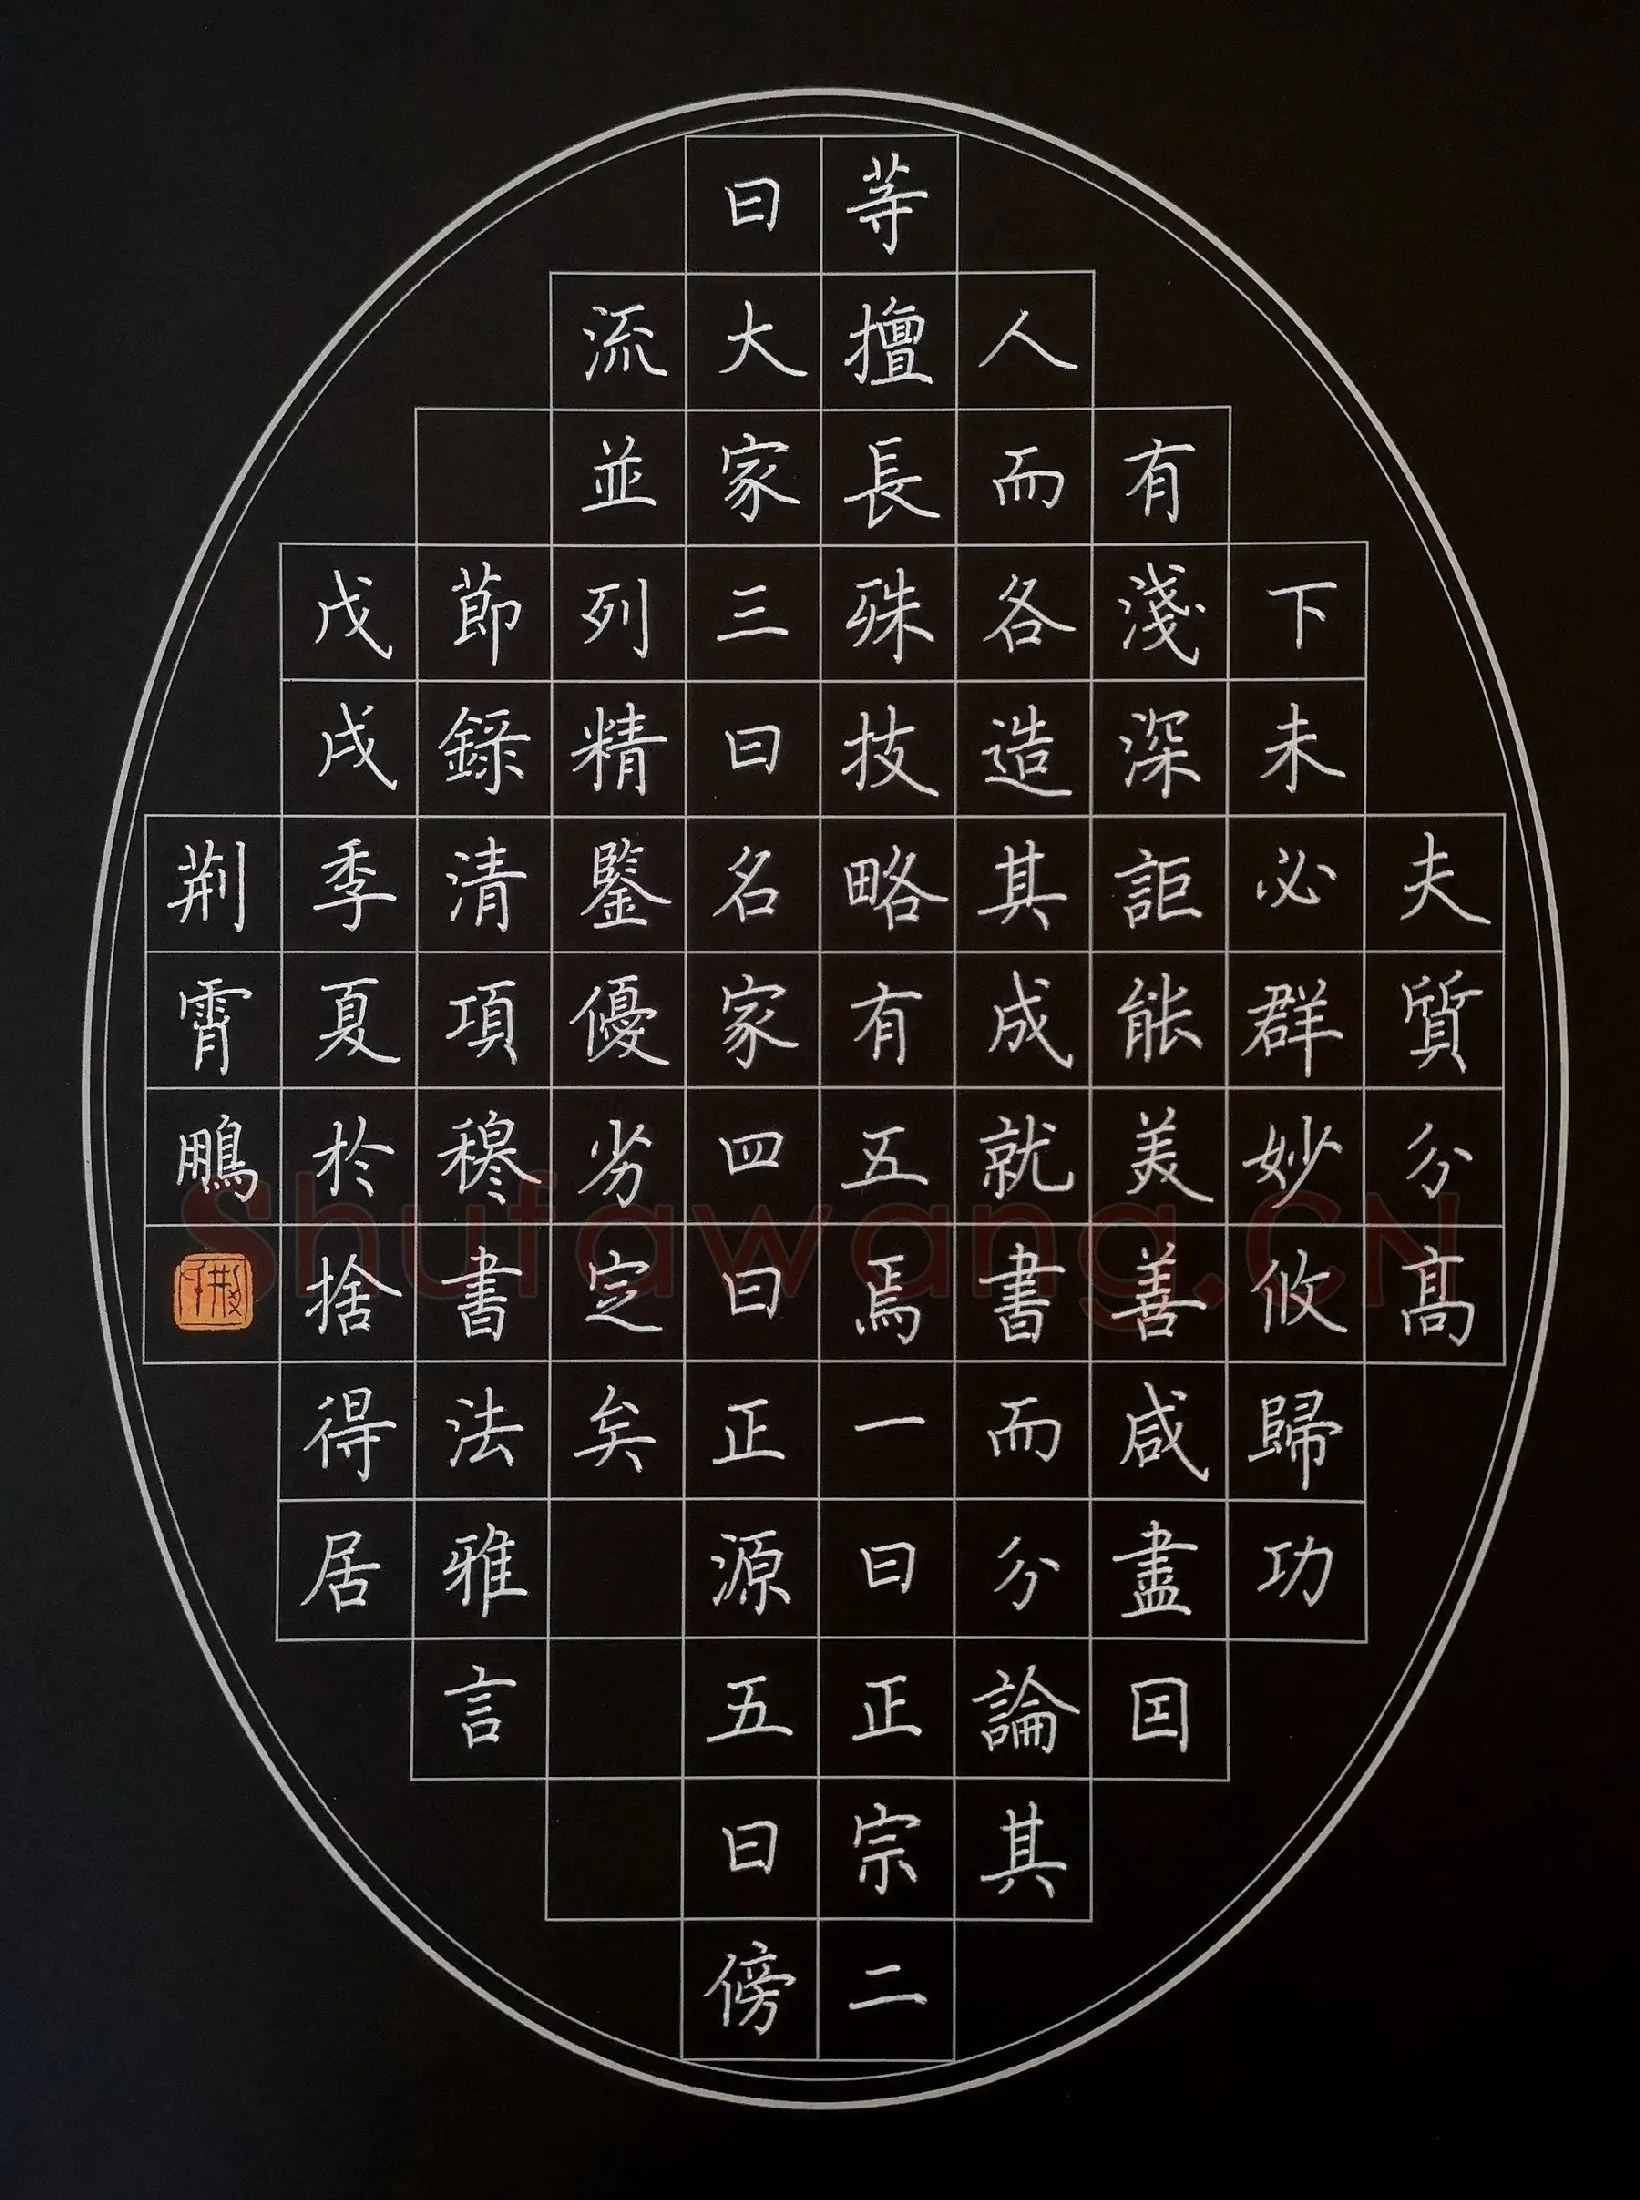 夫質分高
下未必群妙攸歸功
有淺深詎能美善咸盡因
人而各造其成就書而分論其
等擅長殊技略有五焉一曰正宗二
曰大家三曰名家四曰正源五曰傍
流並列精鑒優劣定矣
節錄清項穆書法雅言
戊戌季夏於捨得居
荆霄鵬
Shufawang.CN